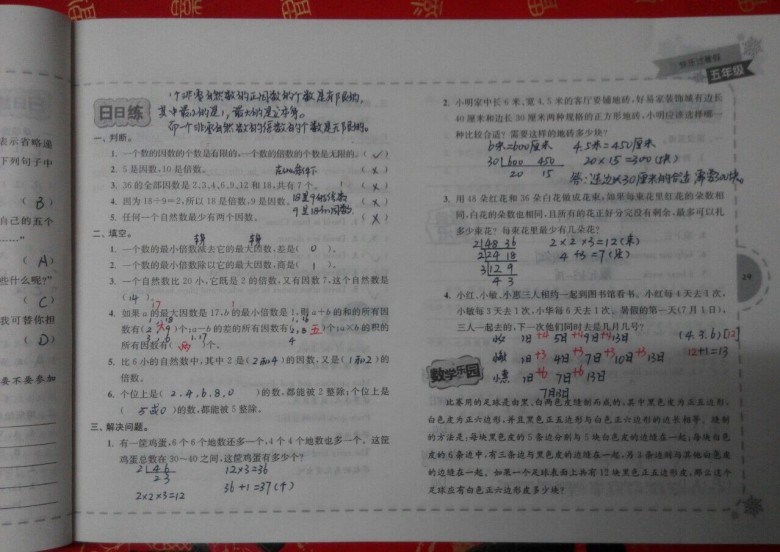 表示省略递
下列句子中
( B )
自己的五个
……"
( A )
些什么呢?"
( C )
我可替你担
( D )
要不要参加
日日练
一、判断。
1. 一个数的因数的个数是有限的,一个数的倍数的个数是无限的。( ✓ )
2. 5是因数,10是倍数。 ( × )
3. 36的全部因数是2,3,4,6,9,12和18,共有7个。 ( × )
4. 因为18÷9=2,所以18是倍数,9是因数。 ( × )
5. 任何一个自然数最少有两个因数。 ( × )
二、填空。
1. 一个数的最小倍数减去它的最大因数,差是( 0 )。
2. 一个数的最小倍数除以它的最大因数,商是( 1 )。
3. 一个自然数比20小,它既是2的倍数,又有因数7,这个自然数是
( 14 )。
4. 如果a的最大因数是17,b的最小倍数是1,则a+b的和的所有因
数有( )个;a-b的差的所有因数有( 五 )个;a×b的积的
所有因数有( 两 )个。
5. 比6小的自然数中,其中2是( 2和4 )的因数,又是( 1和2 )的
倍数。
6. 个位上是( 2,4,6,8,0 )的数,都能被2整除;个位上是
( 5或0 )的数,都能被5整除。
三、解决问题。
1. 有一筐鸡蛋,6个6个地数还多一个,4个4个地数也多一个。这筐
鸡蛋总数在30~40之间,这筐鸡蛋有多少个?
2 4 6
2 3
12×3=36
36+1=37(个)
2×2×3=12
五年级
2. 小明家中长6米、宽4.5米的客厅要铺地砖,好易家装饰城有边长
40厘米和边长30厘米两种规格的正方形地砖,小明应该选择哪一
种比较合适?需要这样的地砖多少块?
6米=600厘米 4.5米=450厘米
30 600 450 20×15=300(块)
20 15
答:选边长30厘米的合适 需要300块。
3. 用48朵红花和36朵白花做成花束,如果每个花束里红花的朵数相
同,白花的朵数也相同,且所有的花正好分完没有剩余,最多可以扎
多少束花?每束花里最少有几朵花?
2 48 36 2×2×3=12(束)
2 24 18 4+3=7(朵)
3 12 9
4 3
4. 小红、小敏、小惠三人相约一起到图书馆看书。小红每4天去1次,
小敏每3天去1次,小华每6天去1次。暑假的第一天(7月1日),
三人一起去的,下一次他们同时去是几月几号?
小红 1日+4 5日+4 9日+4 13日 (4.3.6)[12]
小敏 1日+3 4日+3 7日+3 10日+3 13日 12+1=13
小惠 1日+6 7日+6 13日
7月13日
数学乐园
比赛用的足球是由黑、白两色皮缝制而成的,其中黑色皮为正五边形,
白色皮为正六边形,并且黑色正五边形与白色正六边形的边长相等。缝制
的方法是:每块黑色皮的5条边分别与5块白色皮的边缝在一起;每块白色
皮的6条边中,有三条边与黑色皮的边缝在一起,另3条边则与其他白色皮
的边缝在一起。如果一个足球表面上共有12块黑色正五边形皮,那么这个
足球应有白色正六边形皮多少块?